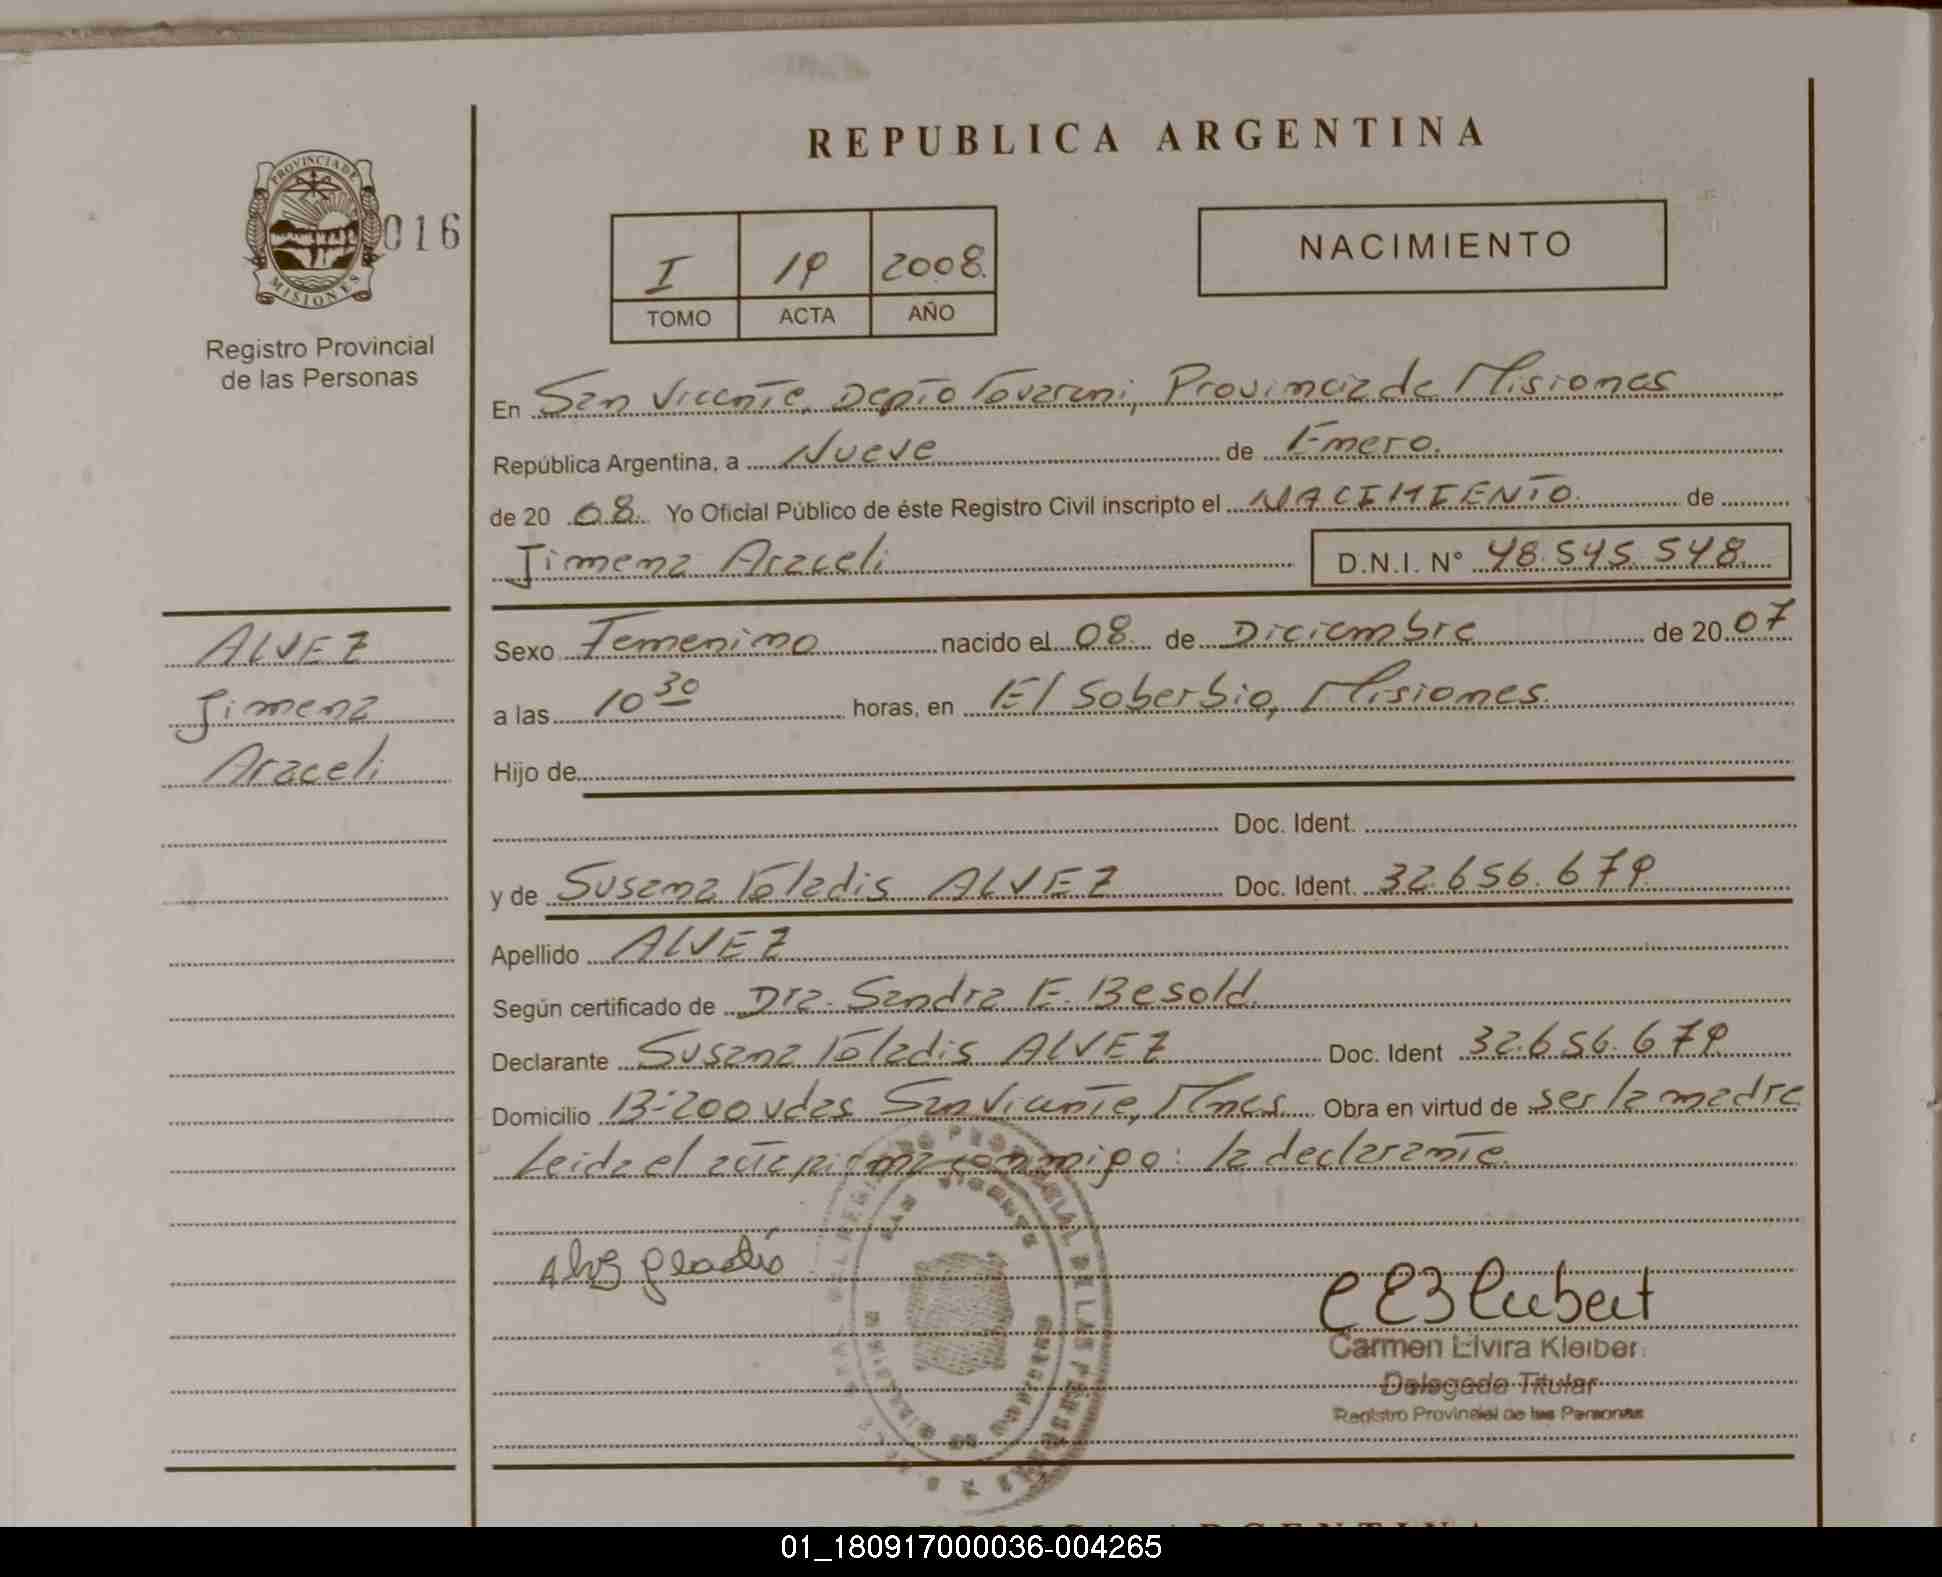 REPUBLICA ARGENTINA
PROVINCIA DE
MISIONES
016
Registro Provincial
de las Personas
I 19 2008.
TOMO ACTA AÑO
NACIMIENTO
En San Vicente, Depto Guarani, Provincia de Misiones
República Argentina, a Nueve de Enero.
de 20 08. Yo Oficial Público de éste Registro Civil inscripto el NACIMIENTO de
Jimena Araceli D.N.I. N° 48.545.548.
ALVEZ
Jimena
Araceli
Sexo Femenino nacido el 08. de Diciembre de 20 07
a las 10 30 horas, en El Soberbio, Misiones.
Hijo de
Doc. Ident.
y de Susana Gladis ALVEZ Doc. Ident. 32.656.679
Apellido ALVEZ
Según certificado de Dra. Sandra E. Besold.
Declarante Susana Gladis ALVEZ Doc. Ident 32.656.679
Domicilio B°-200 vdas San Vicente, Mnes. Obra en virtud de ser la madre
Leida el acta, firma conmigo: la declarante.
Carmen Elvira Kleiber
Delegado Titular
Registro Provincial de las Personas
REGISTRO PROVINCIAL DE LAS PERSONAS
SAN VICENTE
MISIONES
REPUBLICA ARGENTINA
01_180917000036-004265